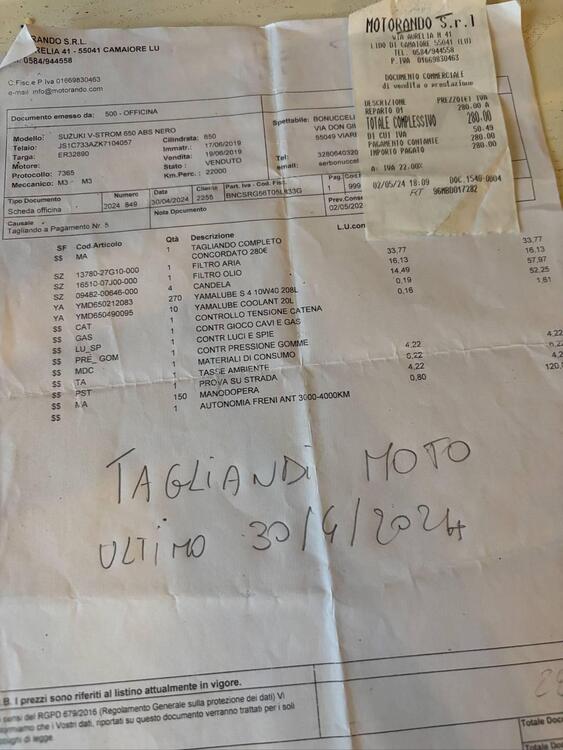 RANDO S.R.L.
URELIA 41 - 55041 CAMAIORE LU
0584/944558
C.Fisc.e P.Iva 01669830463
e-mail info@motorando.com
Documento emesso da: 500 - OFFICINA
Modello: SUZUKI V-STROM 650 ABS NERO
Telaio: JS1C733AZK7104057
Targa: ER32890
Motore:
Protocollo: 7365
Meccanico: M3 - M3
Cilindrata: 650
Immatr.: 17/06/2019
Vendita: 19/06/2019
Stato: VENDUTO
Km.Perc.: 22000
Spettabile: BONUCCELLI
VIA DON GI
55049 VIAR
Tel: 3280640320
email: serbonuccel
Tipo Documento Numero Data Cliente Part. Iva - Cod. Fis Pag. Co
Scheda officina 2024 849 30/04/2024 2255 1 999
Causale Nota Documento Prev.Cons
Tagliando a Pagamento Nr. 5 02/05/202
SF Cod.Articolo Qtà Descrizione L.U.con
$$ MA 1 TAGLIANDO COMPLETO
CONCORDATO 280€
SZ 13780-27G10-000 1 FILTRO ARIA 33,77 33,77
SZ 16510-07J00-000 1 FILTRO OLIO 16,13 16,13
SZ 09482-00646-000 4 CANDELA 14,49 57,97
YA YMD650212083 270 YAMALUBE S 4 10W40 208L 0,19 52,25
YA YMD650490095 10 YAMALUBE COOLANT 20L 0,16 1,61
$$ CAT 1 CONTROLLO TENSIONE CATENA
$$ GAS 1 CONTR GIOCO CAVI E GAS
$$ LU_SP 1 CONTR LUCI E SPIE
$$ PRE_GOM 1 CONTR PRESSIONE GOMME
$$ MDC 1 MATERIALI DI CONSUMO 4,22 4,22
$$ TA 1 TASSE AMBIENTE
$$ PST 1 PROVA SU STRADA 4,22 4,22
$$ MA 150 MANODOPERA 0,80
$$ 1 AUTONOMIA FRENI ANT 3000-4000KM
MOTORANDO S.r.l
VIA AURELIA N 41
LIDO DI CAMAIORE 55041 (LU)
TEL. 0584/944558
P.IVA 01669830463
DOCUMENTO COMMERCIALE
di vendita o prestazione
DESCRIZIONE PREZZO(€) IVA
REPARTO 01 280.00 A
TOTALE COMPLESSIVO 280.00
DI CUI IVA 50.49
PAGAMENTO CONTANTE 280.00
IMPORTO PAGATO 280.00
A: IVA 22.00%
02/05/24 18:09 DOC.1540-0004
96MBD017282
TAGLIANDI MOTO
ULTIMO 30/4/2024
B. I prezzi sono riferiti al listino attualmente in vigore.
sensi del RGPD 679/2016 (Regolamento Generale sulla protezione dei dati) Vi
che i Vostri dati, riportati su questo documento verranno trattati per i soli
di legge.
Totale Doc
Totale Docum